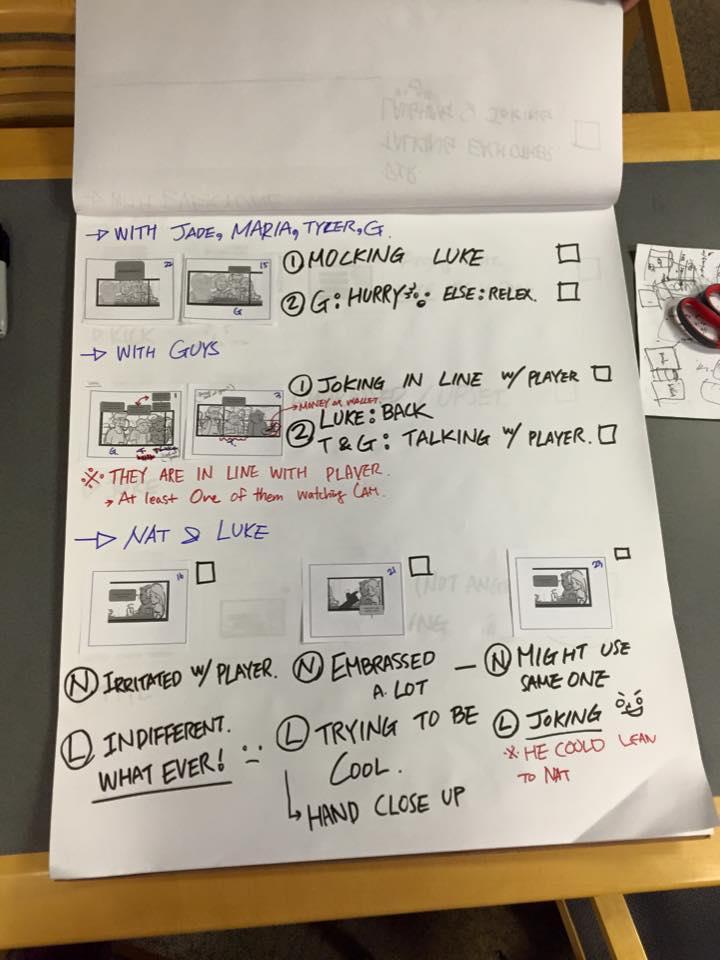 → WITH JADE, MARIA, TYLER, G.
22
15
G
① MOCKING LUKE
② G: HURRY ELSE: RELEX.
→ WITH GUYS
1
3
G
① JOKING IN LINE W/ PLAYER
→ MONEY OR WALLET.
② LUKE: BACK
T & G: TALKING W/ PLAYER.
※ THEY ARE IN LINE WITH PLAYER.
→ At least One of them Watching CAM.
→ NAT & LUKE
16
21
23
Ⓝ IRRITATED W/ PLAYER.
Ⓛ INDIFFERENT.
WHAT EVER!
Ⓝ EMBRASSED
A LOT
Ⓛ TRYING TO BE
COOL.
↳ HAND CLOSE UP
— Ⓝ MIGHT USE
SAME ONE
Ⓛ JOKING
※ HE COULD LEAN
TO NAT